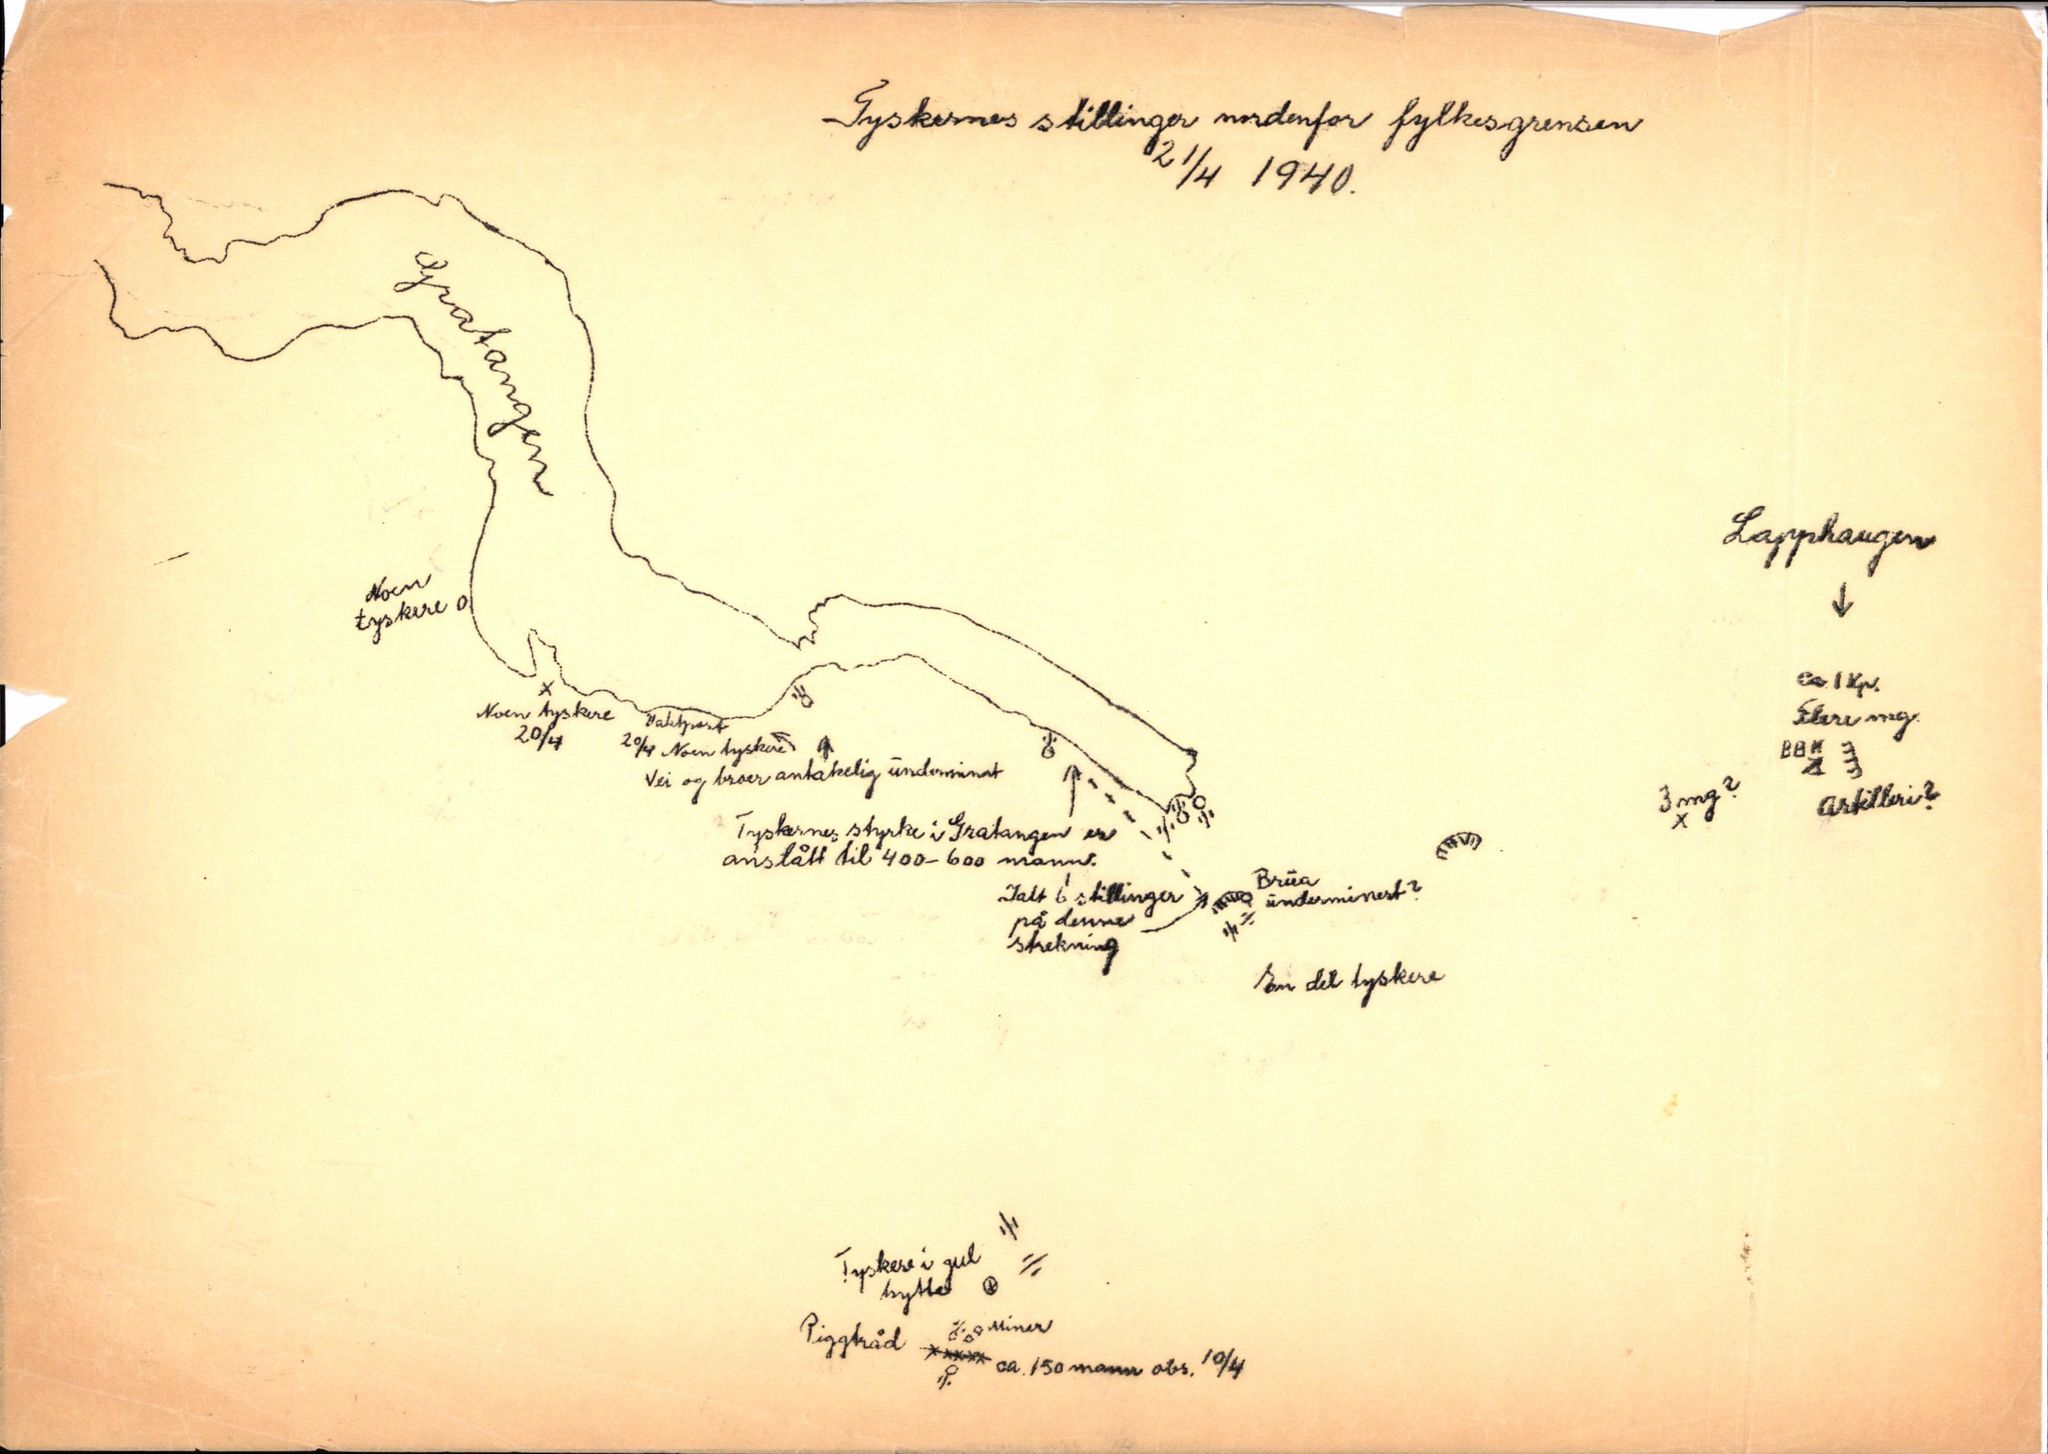 Tyskernes stillinger nordenfor fylkesgrensen
21/4 1940.
Gratangen
Lapphaugen
Noen
tyskere
ca 1 Kp.
Flere mg.
3 mg?
Artilleri?
Noen tyskere
20/4
Vaktpost
20/4 Noen tyskere
Vei og broer antakelig ünderminert
Tyskernes styrke i Gratangen er
anslått til 400-600 mann.
Ialt 6 stillinger
på denne
strekning
Brüa
ünderminert?
En del tyskere
Tyskere i gul
hytte
Miner
Piggtråd
ca. 150 mann obs. 10/4